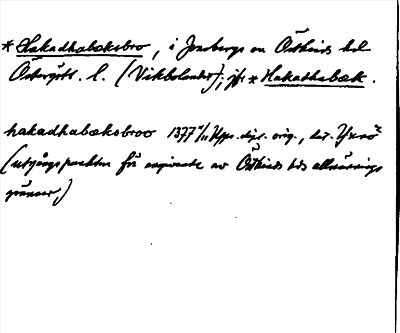 * Hakadhabæksbro, i Jonsbergs sn Östkinds hd
Östergötl. l. (Vikbolandet); jfr * Hakathabæk.
hakadhabæksbroo 1377 4/11 Upps. dipl. orig., dat.
(utgångspunkten för angivande av Östkinds hds allmännings
gränser)